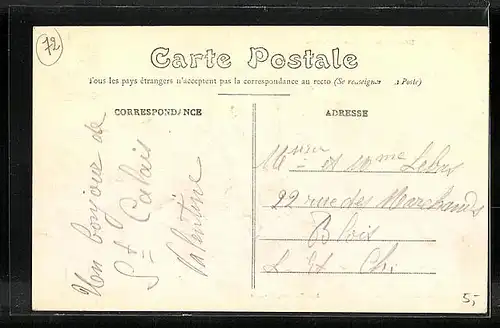 72
Carte Postale
Tous les pays étrangers n'acceptent pas la correspondance au recto (Se renseigner à Poste)
CORRESPONDANCE
ADRESSE
Un bonjour de
St Calais
Valentine
Monsieur et Mme
22 rue des Marchands
Blois
L-et-Cher
5,-